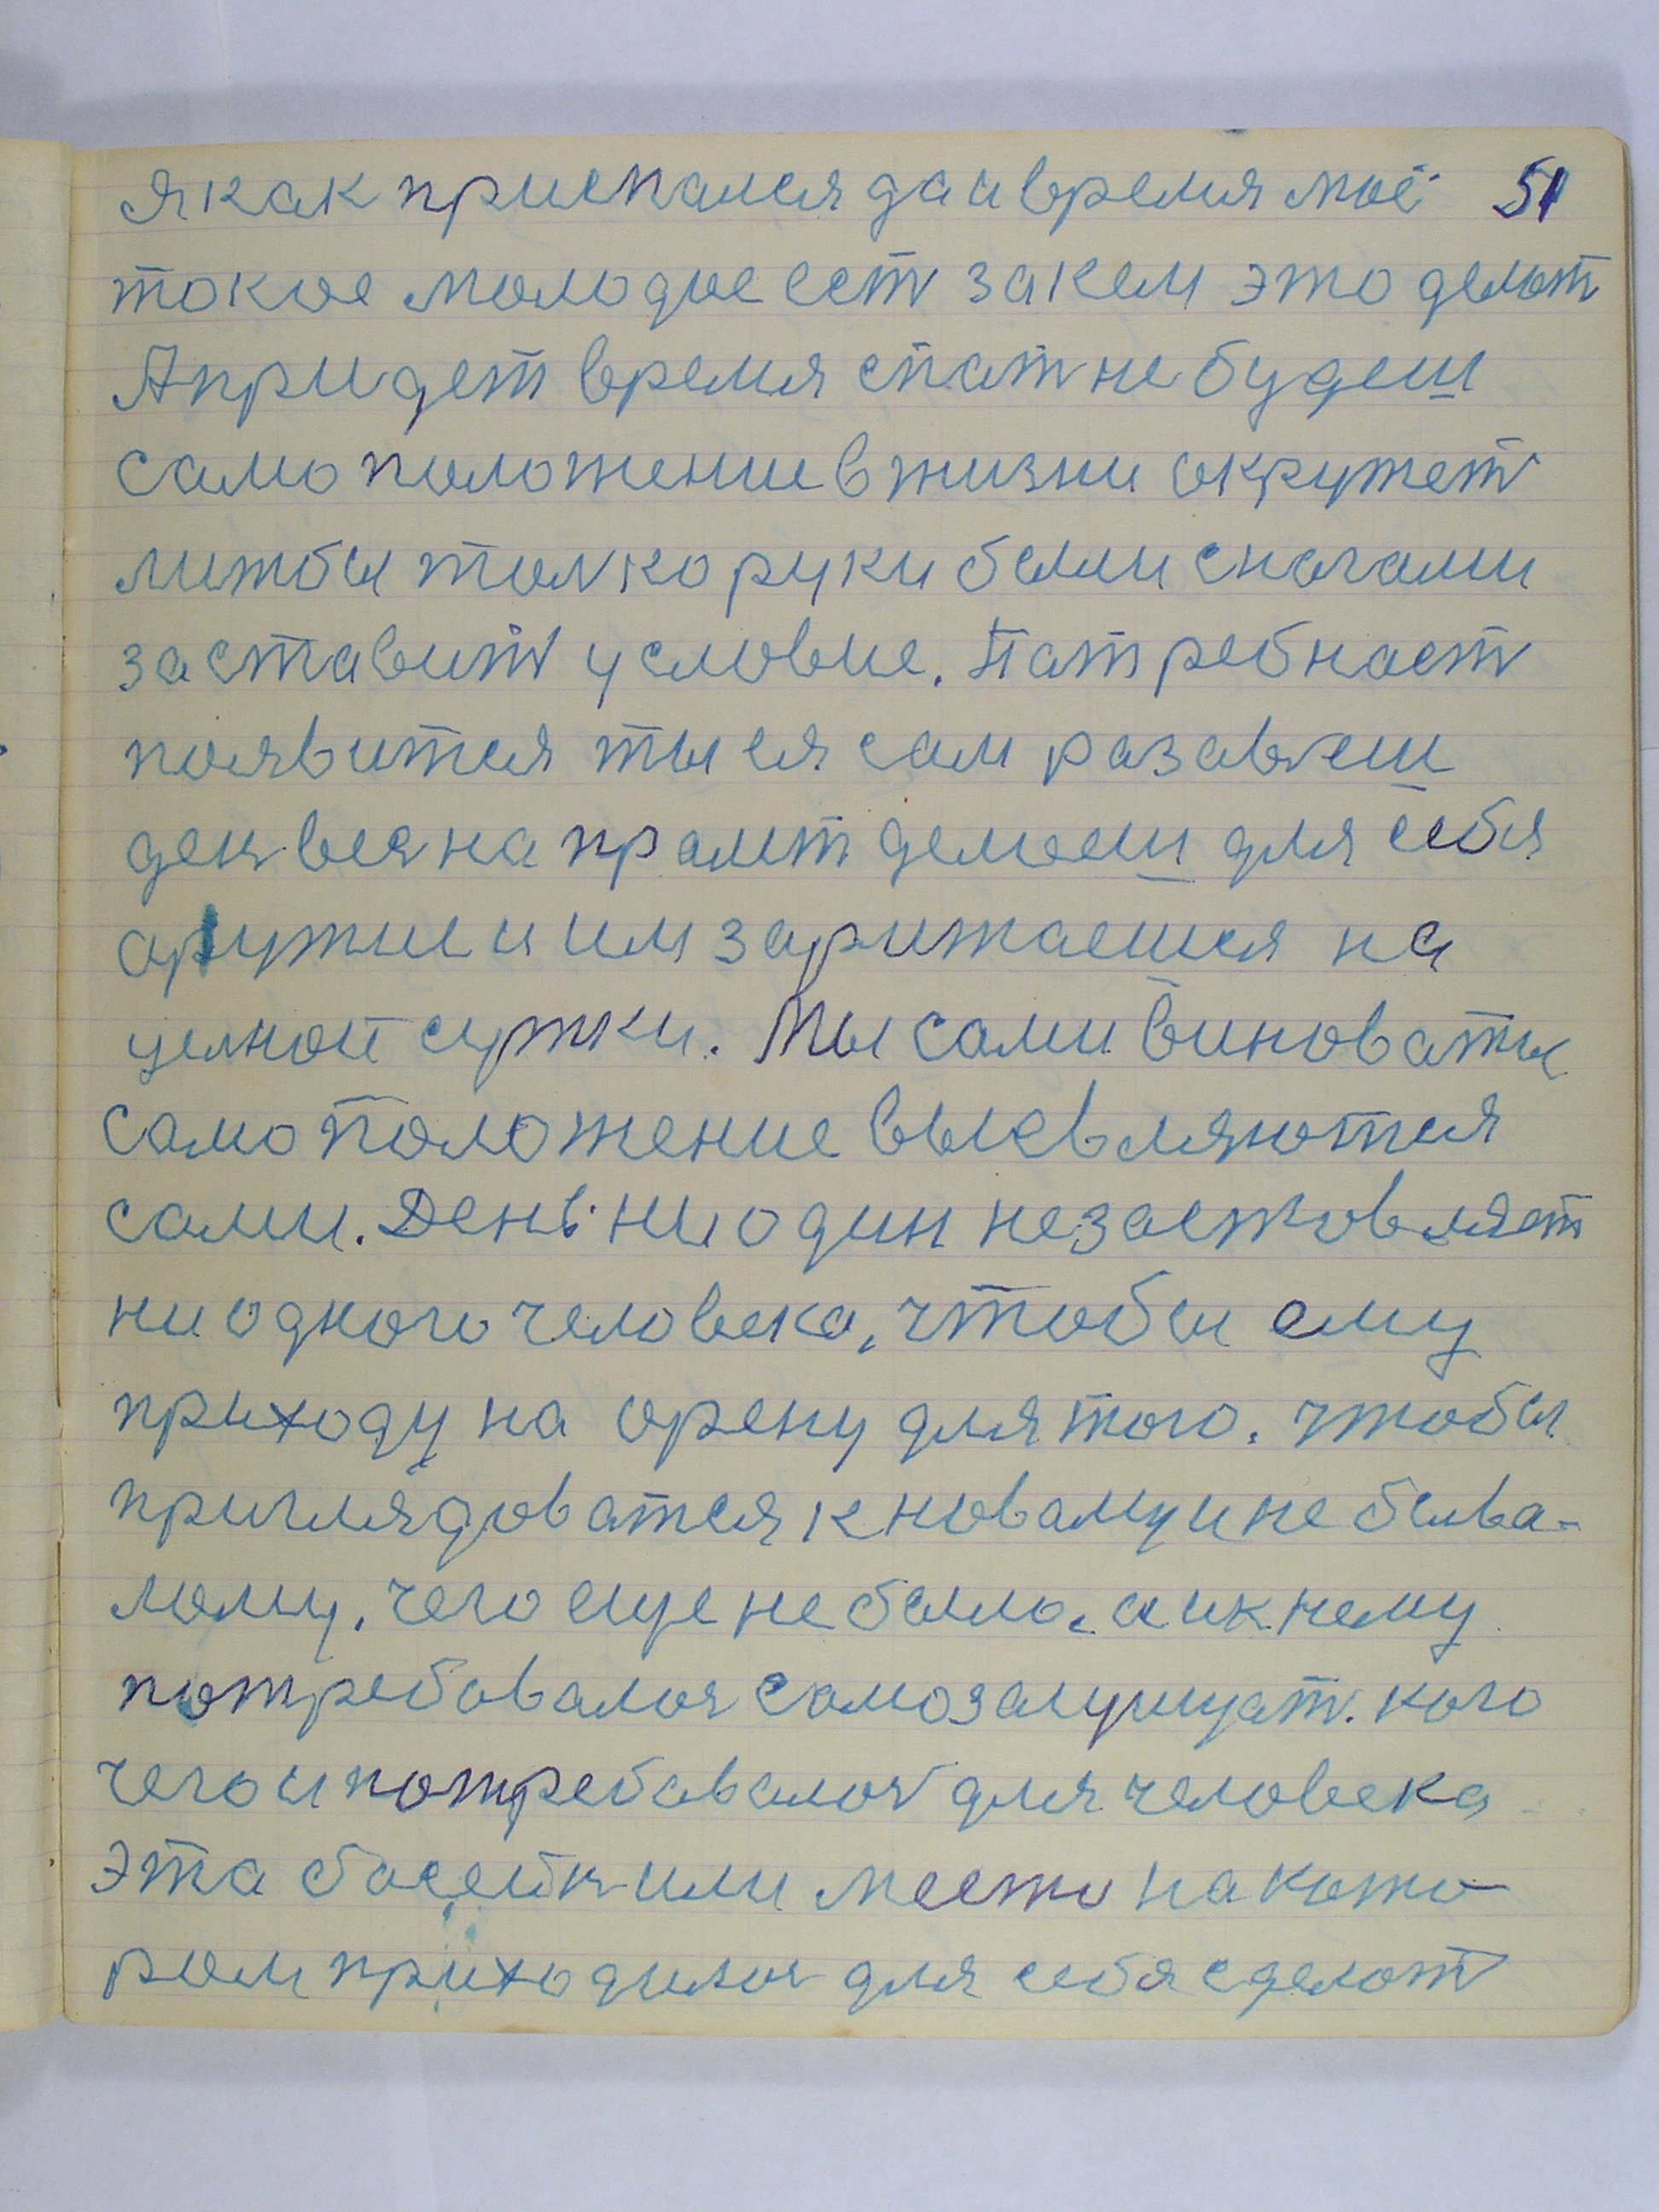 я как приспался да и время моё 51
токое молодое ест за кем это делат
А придет время спат не будеш
само положение в жизни окружет
лижбы толко руки были с ногами
заставит условие. Патребност
появится ты ея сам разавьеш
ден вся на прамт делаеш для себя
аружие и им заритаешся на
целной сутки. Мы сами виноваты
само положение высвляются
сами. День ни один незастовляет
ни одного человека, чтобы ему
приходу на орену для того. чтобы
приглядоватся к новаму и не быва-
лому. чего еще не было. а и к чему
потребовалоя само защищат. кого
чего и потребавалоя для человека
эта басейн или место на кото-
ром приходилоя для себя сделат